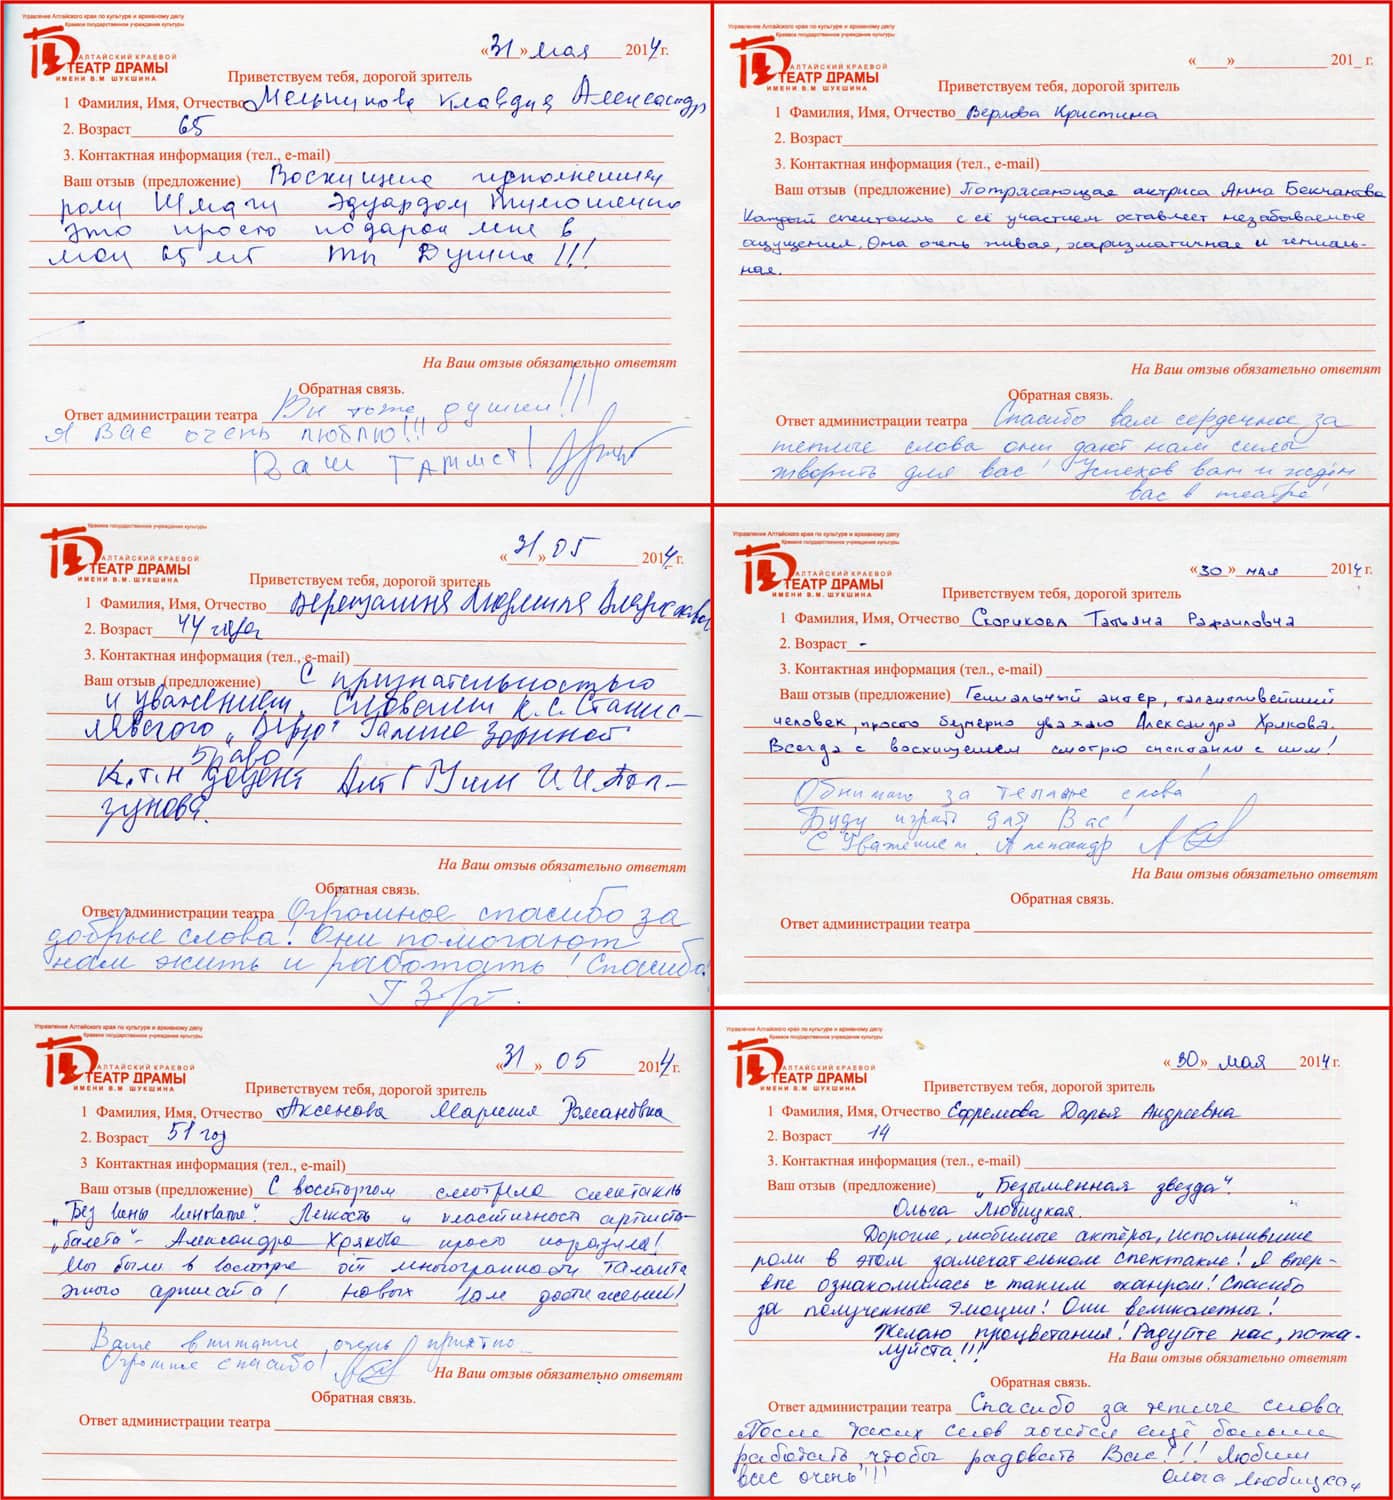 Управление Алтайского края по культуре и архивному делу
Краевое государственное учреждение культуры
АЛТАЙСКИЙ КРАЕВОЙ
ТЕАТР ДРАМЫ
ИМЕНИ В.М. ШУКШИНА
«31» мая 2014 г.
Приветствуем тебя, дорогой зритель
1 Фамилия, Имя, Отчество Мельникова Клавдия Александр
2. Возраст 65
3. Контактная информация (тел., e-mail)
Ваш отзыв (предложение) Восхищена исполнением
роли Шмаги Эдуардом Тимошенко
это просто подарок мне в
мои 65 лет ты Душка!!!
На Ваш отзыв обязательно ответят
Обратная связь.
Ответ администрации театра Вы тоже душки!!!
Я Вас очень люблю!!!
Ваш
Управление Алтайского края по культуре и архивному делу
Краевое государственное учреждение культуры
АЛТАЙСКИЙ КРАЕВОЙ
ТЕАТР ДРАМЫ
ИМЕНИ В.М. ШУКШИНА
«___»____________ 201_ г.
Приветствуем тебя, дорогой зритель
1 Фамилия, Имя, Отчество Верлова Кристина
2. Возраст
3. Контактная информация (тел., e-mail)
Ваш отзыв (предложение) Потрясающая актриса Анна Бекчанова
Каждый спектакль с её участием оставляет незабываемые
ощущения. Она очень живая, харизматичная и гениаль-
ная.
На Ваш отзыв обязательно ответят
Обратная связь.
Ответ администрации театра Спасибо вам сердечное за
теплые слова они дают нам силы
творить для вас! Успехов вам и ждём
вас в театре!
Краевое государственное учреждение культуры
АЛТАЙСКИЙ КРАЕВОЙ
ТЕАТР ДРАМЫ
ИМЕНИ В.М. ШУКШИНА
«31» 05 2014 г.
Приветствуем тебя, дорогой зритель
1 Фамилия, Имя, Отчество Верещагина Людмила
2. Возраст 44 года
3. Контактная информация (тел., e-mail)
Ваш отзыв (предложение) С признательностью
и уважением. Словами К.С. Станис-
лавского „Верю" Галине Зориной
Браво!
К.т.н доцент АлтГТУ им И.И. Пол-
зунова.
На Ваш отзыв обязательно ответят
Обратная связь.
Ответ администрации театра Огромное спасибо за
добрые слова! Они помогают
нам жить и работать! Спасибо!
Управление Алтайского края по культуре и архивному делу
Краевое государственное учреждение культуры
АЛТАЙСКИЙ КРАЕВОЙ
ТЕАТР ДРАМЫ
ИМЕНИ В.М. ШУКШИНА
«30» мая 2014 г.
Приветствуем тебя, дорогой зритель
1 Фамилия, Имя, Отчество Скорикова Татьяна Рафаиловна
2. Возраст -
3. Контактная информация (тел., e-mail)
Ваш отзыв (предложение) Гениальный актер, талантливейший
человек, просто безмерно уважаю Александра Хрякова.
Всегда с восхищением смотрю спектакли с ним!
Обнимаю за теплые слова!
Буду играть для Вас!
С Уважением. Александр
На Ваш отзыв обязательно ответят
Обратная связь.
Ответ администрации театра
Управление Алтайского края по культуре и архивному делу
Краевое государственное учреждение культуры
АЛТАЙСКИЙ КРАЕВОЙ
ТЕАТР ДРАМЫ
ИМЕНИ В.М. ШУКШИНА
«31» 05 2014 г.
Приветствуем тебя, дорогой зритель
1 Фамилия, Имя, Отчество Аксенова Марина Романовна
2. Возраст 51 год
3 Контактная информация (тел., e-mail)
Ваш отзыв (предложение) С восторгом смотрела спектакль
„Без вины виноватые". Легкость и пластичность артиста
„балета" - Александра Хрякова просто поразила!
Мы были в восторге от многогранности таланта
этого артиста! Новых Вам достижений!
Ваше внимание очень приятно
Огромное спасибо!
На Ваш отзыв обязательно ответят
Обратная связь.
Ответ администрации театра
Управление Алтайского края по культуре и архивному делу
Краевое государственное учреждение культуры
АЛТАЙСКИЙ КРАЕВОЙ
ТЕАТР ДРАМЫ
ИМЕНИ В.М. ШУКШИНА
«30» мая 2014 г.
Приветствуем тебя, дорогой зритель
1 Фамилия, Имя, Отчество Ефремова Дарья Андреевна
2. Возраст 14
3. Контактная информация (тел., e-mail)
Ваш отзыв (предложение) „Безымянная звезда".
Ольга Любицкая.
Дорогие, любимые актёры, исполнившие
роли в этом замечательном спектакле! Я впер-
вые ознакомилась с таким жанром! Спасибо
за полученные эмоции! Они великолепны!
Желаю процветания! Радуйте нас, пожа-
луйста!!!
На Ваш отзыв обязательно ответят
Обратная связь.
Ответ администрации театра Спасибо за теплые слова
После таких слов хочется ещё больше
работать, чтобы радовать Вас!!! Любим
вас очень!!! Ольга Любицкая